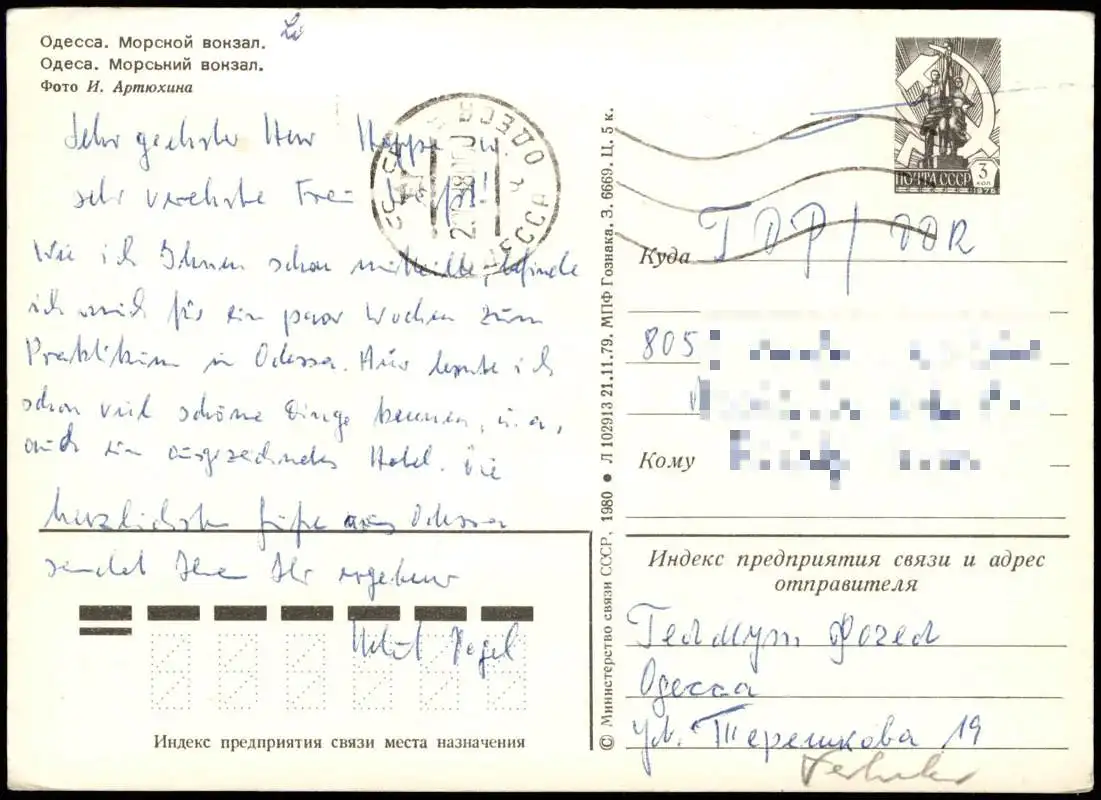 Одесса. Морской вокзал.
Одеса. Морський вокзал.
Фото И. Артюхина
Sehr geehrter Herr Hoppe u.
sehr verehrte Frau
Wie ich Ihnen schon mitteilte, befinde
ich mich für ein paar Wochen zum
Praktikum in Odessa. Hier lernte ich
schon viel schöne Dinge kennen, u.a,
auch ein ausgezeichnetes Hotel. Die
herzlichsten Grüße aus Odessa
sendet Ihnen Ihr ergebener
Vogel
Индекс предприятия связи места назначения
© Министерство связи СССР, 1980 ● Л 102913 21.11.79. МПФ Гознака. З. 6669. Ц. 5 к.
ПОЧТА СССР
3
КОП
1976
Куда ГДР / DDR
805
Кому
Индекс предприятия связи и адрес
отправителя
Гелмут Фогел
Одесса
ул. Терешкова 19